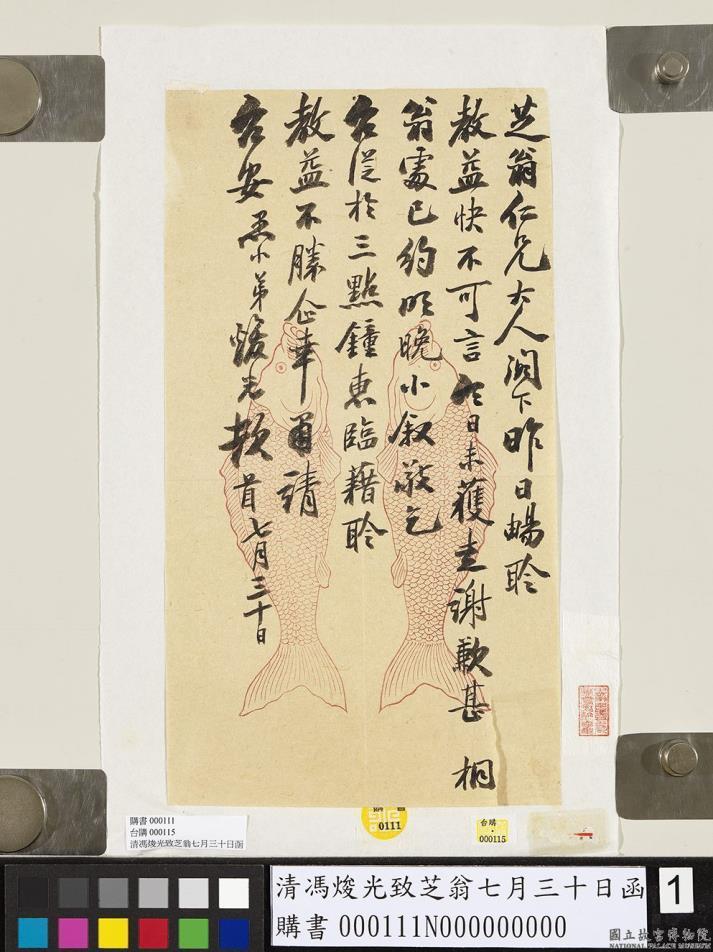 芝翁仁兄大人閣下昨日暢聆
教益快不可言今日未獲走謝歉甚 桐
翁處已約明晚小叙敬乞
台從於三點鐘惠臨藉聆
教益不勝企幸肅請
台安愚小弟焌光頓首七月三十日
購書 000111
台購 000115
清馮焌光致芝翁七月三十日函
0111
台購
000115
清馮焌光致芝翁七月三十日函
購書 000111N000000000
1
國立故宮博物院
NATIONAL PALACE MUSEUM